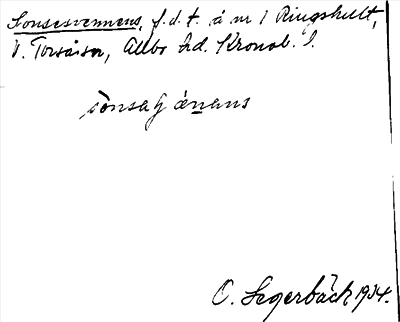 Sonsesvennens, f.d.t. å nr 1 Ringshult,
V. Torsås sn, Allbo hd. Kronob. l.
sònsag ánans
C. Segerbäck 1934.